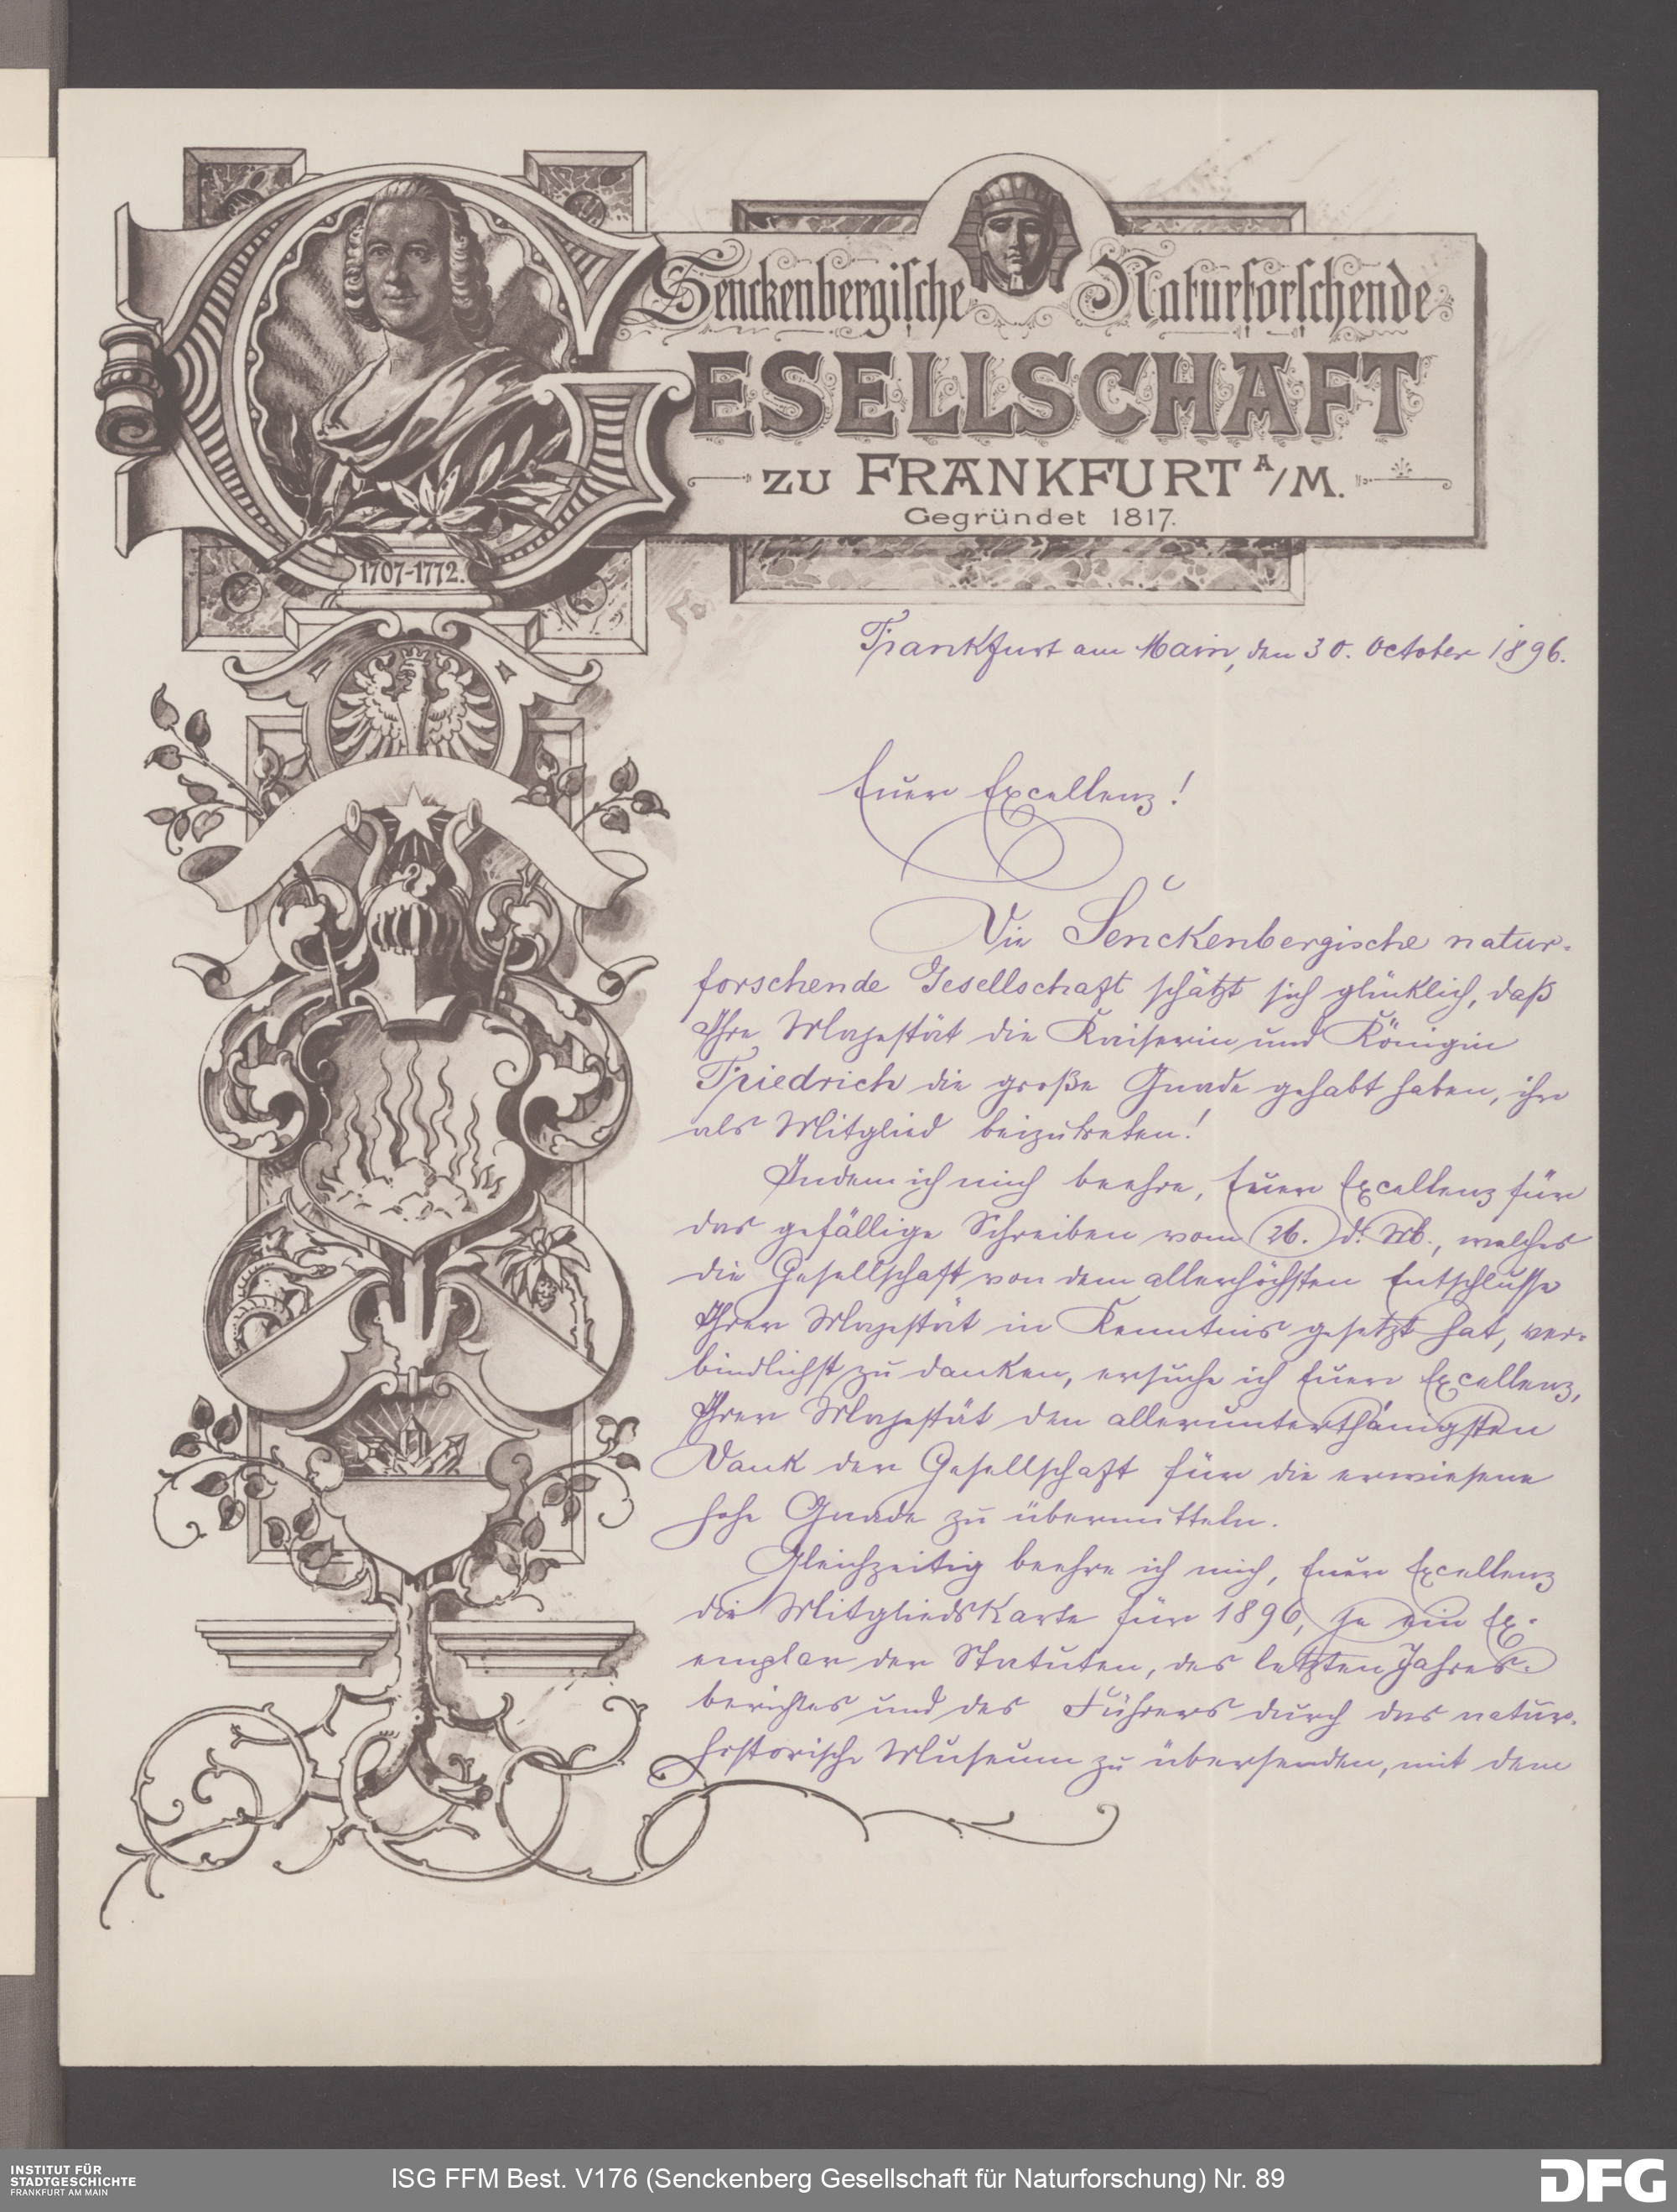 Senckenbergische Naturforschende
GESELLSCHAFT
ZU FRANKFURT A/M.
Gegründet 1817.
1707-1772.
Frankfurt am Main, den 30. October 1896.
Euer Excellenz!
Die Senckenbergische natur-
forschende Gesellschaft schätzt sich glücklich, daß
Ihre Majestät die Kaiserin und Königin
Friedrich die große Gnade gehabt haben, ihr
als Mitglied beizutreten!
Indem ich mich beehre, Euer Excellenz für
das gefällige Schreiben vom 26. d. Mts., welches
die Gesellschaft von dem allerhöchsten Entschlusse
Ihrer Majestät in Kenntnis gesetzt hat, ver-
bindlichst zu danken, ersuche ich Euer Excellenz,
Ihrer Majestät den allerunterthänigsten
Dank der Gesellschaft für die erwiesene
hohe Gnade zu übermitteln.
Gleichzeitig beehre ich mich, Euer Excellenz
die Mitgliedskarte für 1896, je ein Ex-
emplar der Statuten, des letzten Jahres-
berichtes und des Führers durch das natur-
historische Museum zu übersenden, mit dem
INSTITUT FÜR
STADTGESCHICHTE
FRANKFURT AM MAIN
ISG FFM Best. V176 (Senckenberg Gesellschaft für Naturforschung) Nr. 89
DFG